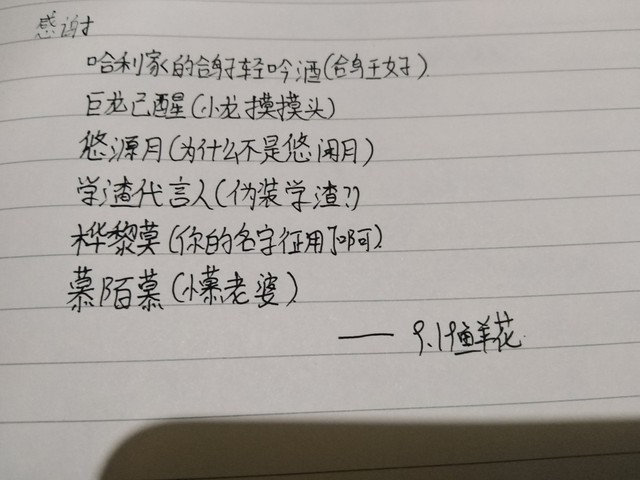 感谢
哈利家的鸽子轻吟酒(鸽王好)
巨龙已醒(小龙摸摸头)
悠源月(为什么不是悠闲月)
学渣代言人(伪装学渣?)
桦黎莫(你的名字征用了啊)
慕陌慕(小慕老婆)
—— 9.19鲜花